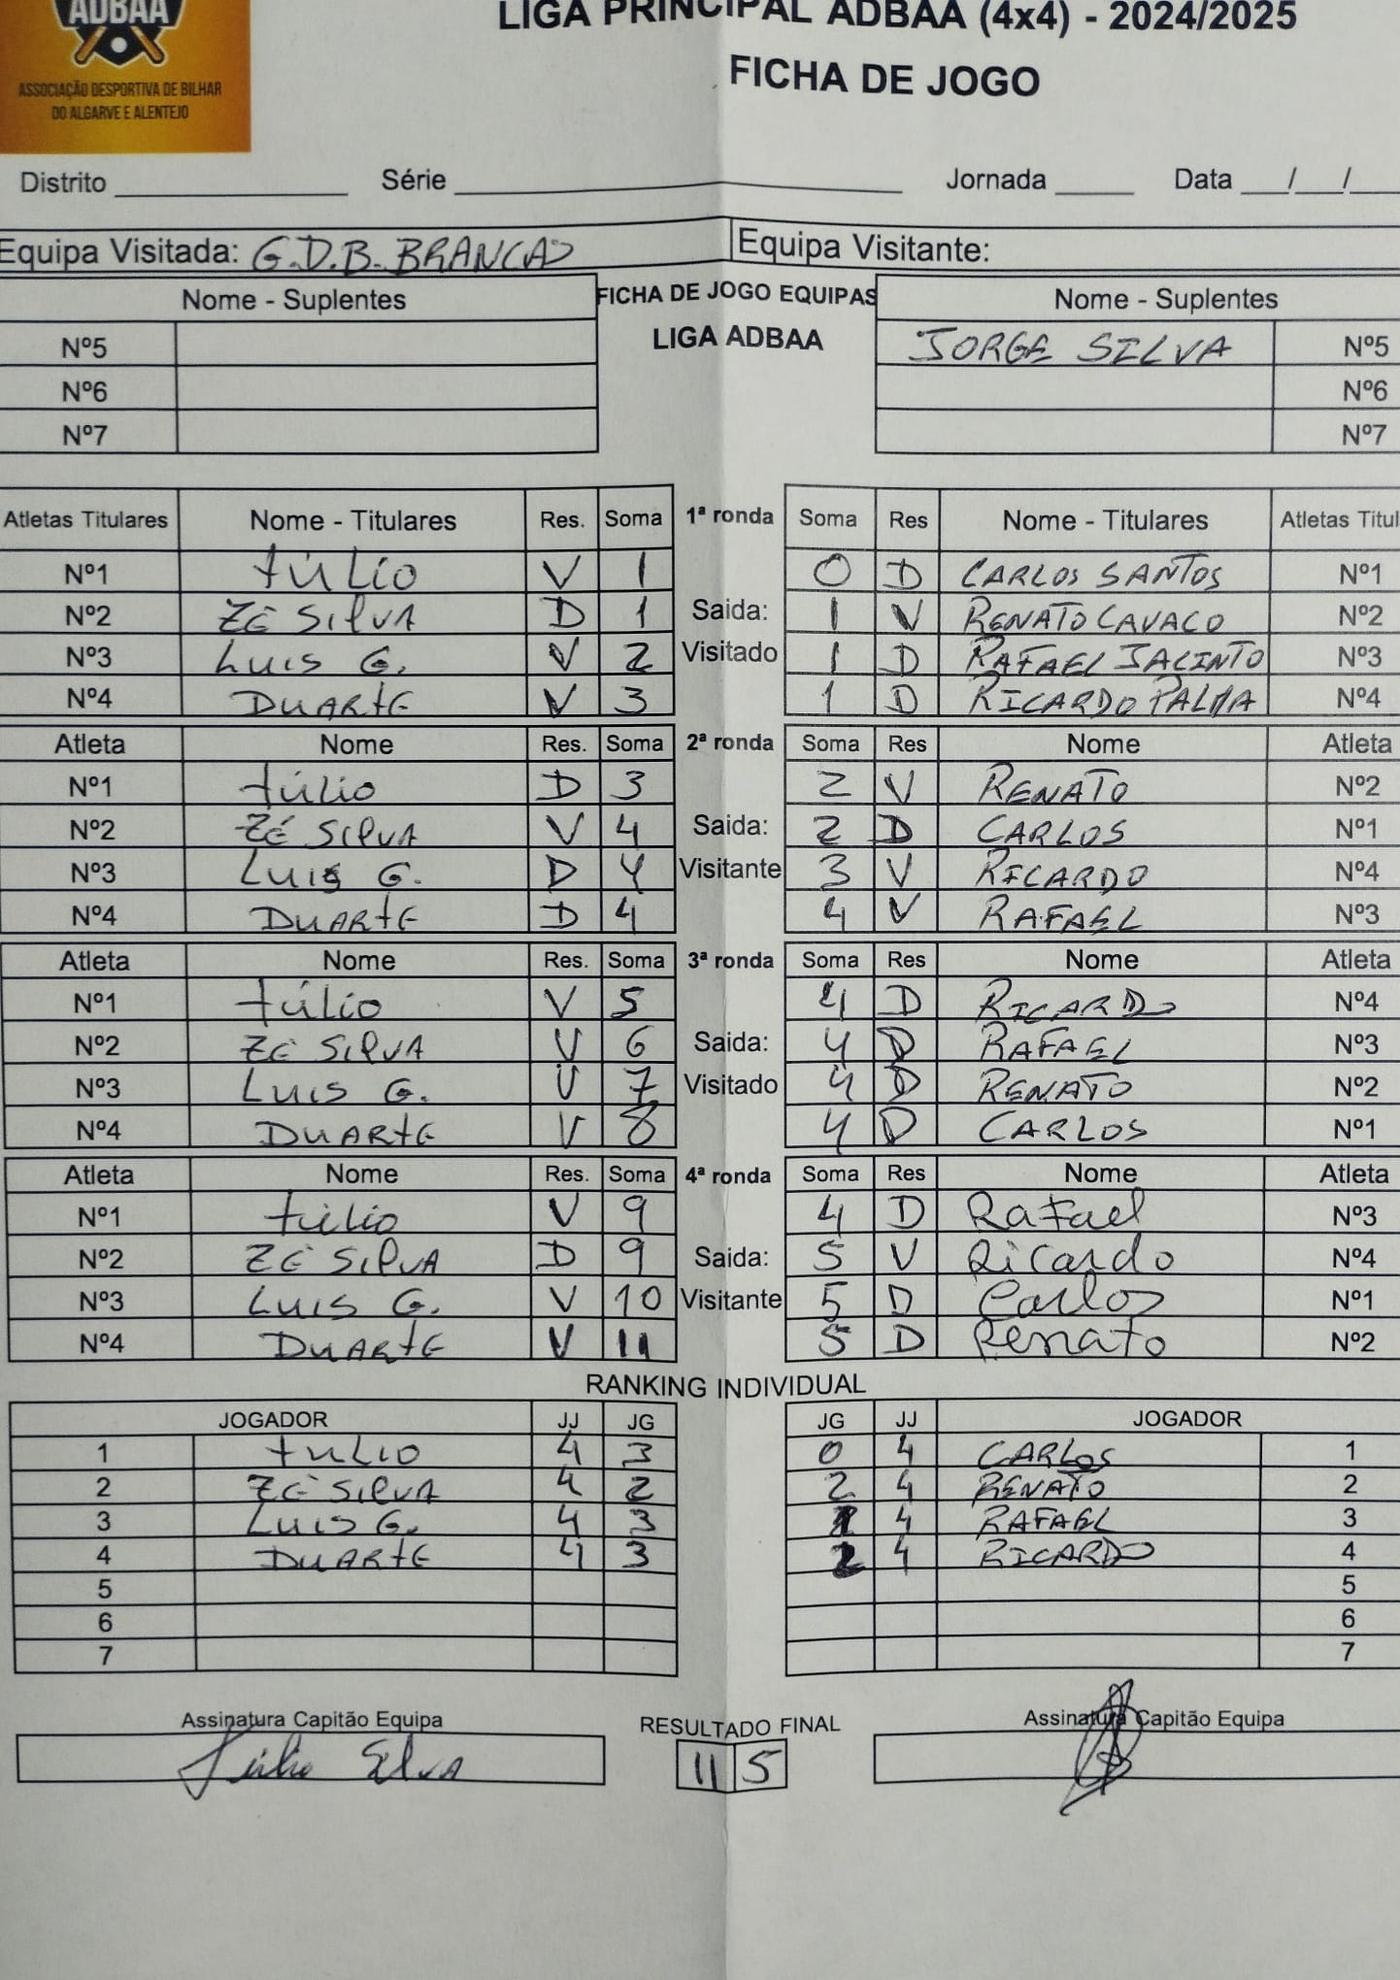 ADBAA
ASSOCIAÇÃO DESPORTIVA DE BILHAR
DO ALGARVE E ALENTEJO
LIGA PRINCIPAL ADBAA (4x4) - 2024/2025
FICHA DE JOGO
Distrito Série Jornada Data / /
Equipa Visitada: G.D.B. BRANCAS Equipa Visitante:
Nome - Suplentes FICHA DE JOGO EQUIPAS Nome - Suplentes
LIGA ADBAA
Nº5 JORGE SILVA Nº5
Nº6 Nº6
Nº7 Nº7
Atletas Titulares Nome - Titulares Res. Soma 1ª ronda Soma Res Nome - Titulares Atletas Titul
Nº1 túLio V 1 0 D CARLOS SANTOS Nº1
Nº2 ZÉ SilVA D 1 Saida: 1 V RENATO CAVACO Nº2
Nº3 Luis G. V 2 Visitado 1 D RAFAEL JACINTO Nº3
Nº4 DUARtE V 3 1 D RICARDO PALMA Nº4
Atleta Nome Res. Soma 2ª ronda Soma Res Nome Atleta
Nº1 túlio D 3 2 V RENATO Nº2
Nº2 ZÉ SilVA V 4 Saida: 2 D CARLOS Nº1
Nº3 Luis G. D 4 Visitante 3 V RICARDO Nº4
Nº4 DUARtE D 4 4 V RAFAEL Nº3
Atleta Nome Res. Soma 3ª ronda Soma Res Nome Atleta
Nº1 túlio V 5 4 D RICARDO Nº4
Nº2 ZÉ SilVA V 6 Saida: 4 D RAFAEL Nº3
Nº3 Luis G. V 7 Visitado 4 D RENATO Nº2
Nº4 DUARtE V 8 4 D CARLOS Nº1
Atleta Nome Res. Soma 4ª ronda Soma Res Nome Atleta
Nº1 túlio V 9 4 D Rafael Nº3
Nº2 ZÉ SilVA D 9 Saida: 5 V Ricardo Nº4
Nº3 Luis G. V 10 Visitante 5 D Carlos Nº1
Nº4 DUARtE V 11 5 D Renato Nº2
RANKING INDIVIDUAL
JOGADOR JJ JG JG JJ JOGADOR
1 tULIO 4 3 0 4 CARLOS 1
2 ZÉ SilVA 4 2 2 4 RENATO 2
3 Luis G. 4 3 1 4 RAFAEL 3
4 DUARtE 4 3 2 4 RICARDO 4
5 5
6 6
7 7
Assinatura Capitão Equipa RESULTADO FINAL Assinatura Capitão Equipa
Túlio Silva 11 5